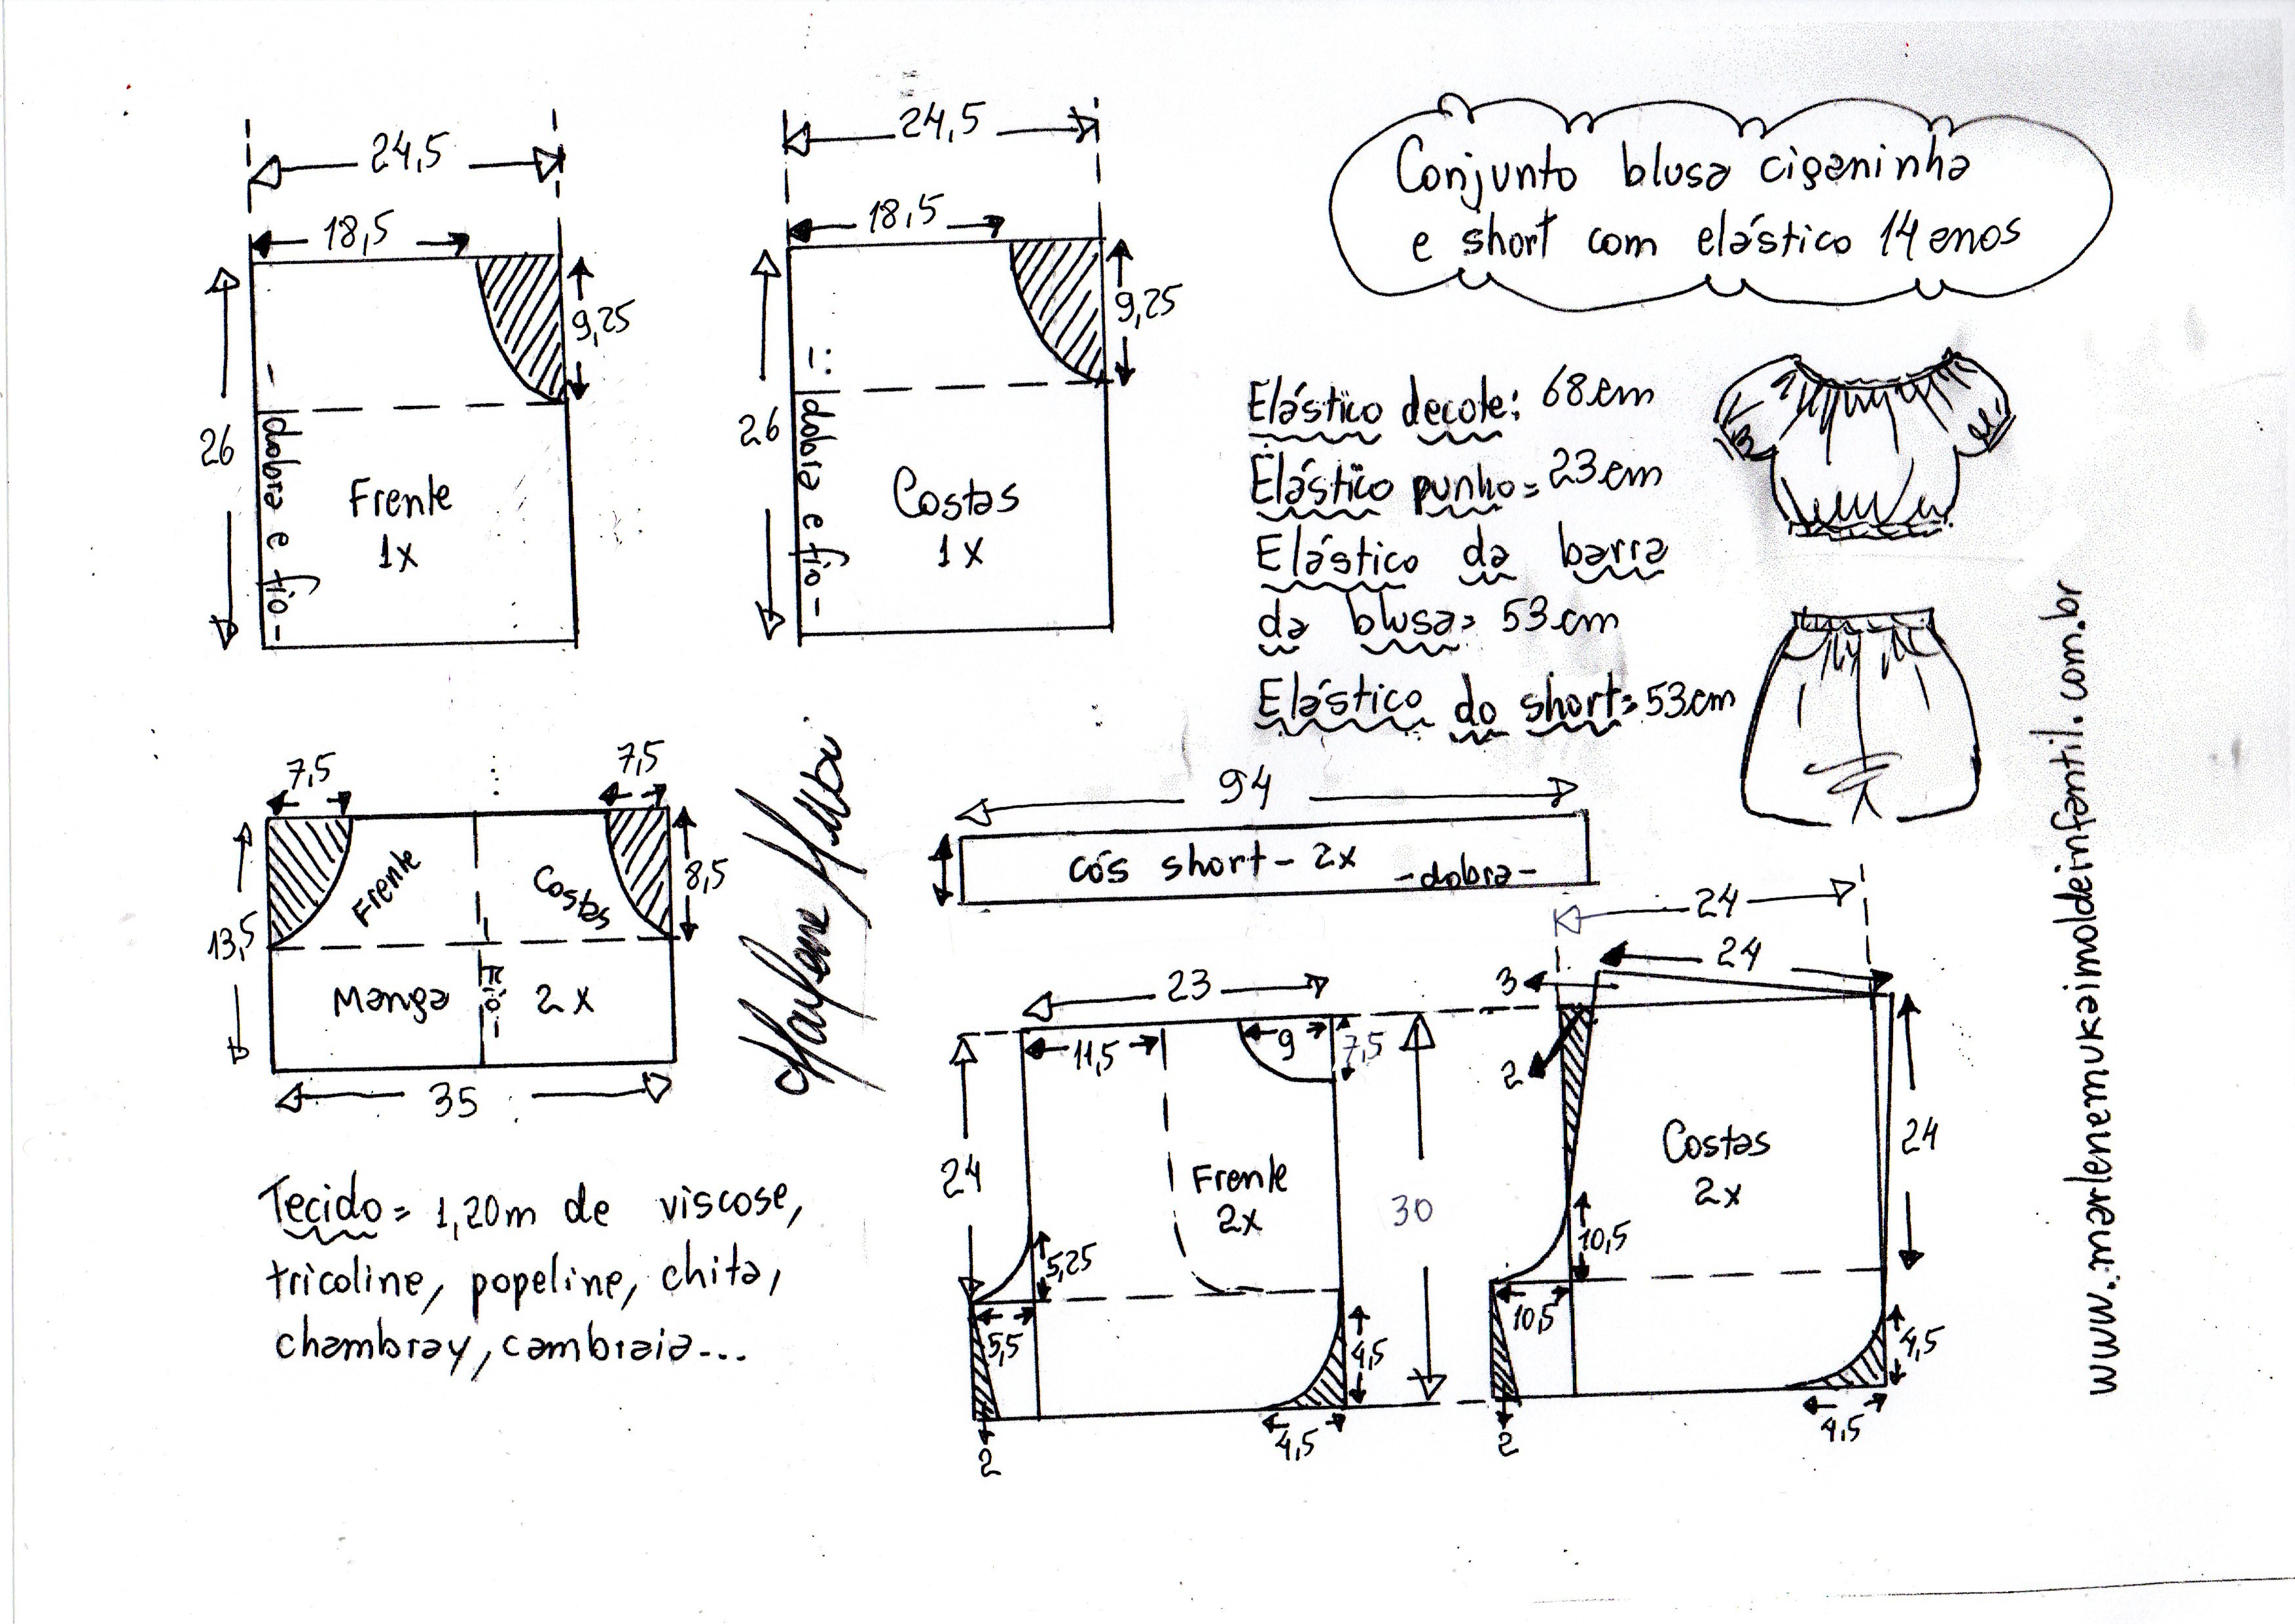 Conjunto blusa ciganinha
e short com elástico 14 anos
24,5
18,5
9,25
26
dobra e fio
Frente
1x
24,5
18,5
9,25
26
dobra e fio
Costas
1x
Elástico decote: 68cm
Elástico punho= 23cm
Elástico da barra
da blusa= 53cm
Elástico do short= 53cm
www.marlenemukaimoldeinfantil.com.br
7,5
7,5
Frente
Costas
8,5
13,5
Manga
Fio
2x
35
94
cós short - 2x
-dobra-
Tecido= 1,20m de viscose,
tricoline, popeline, chita,
chambray, cambraia...
23
11,5
9
7,5
24
30
Frente
2x
5,25
5,5
4,5
4,5
2
24
24
3
2
Costas
2x
24
10,5
10,5
4,5
4,5
2